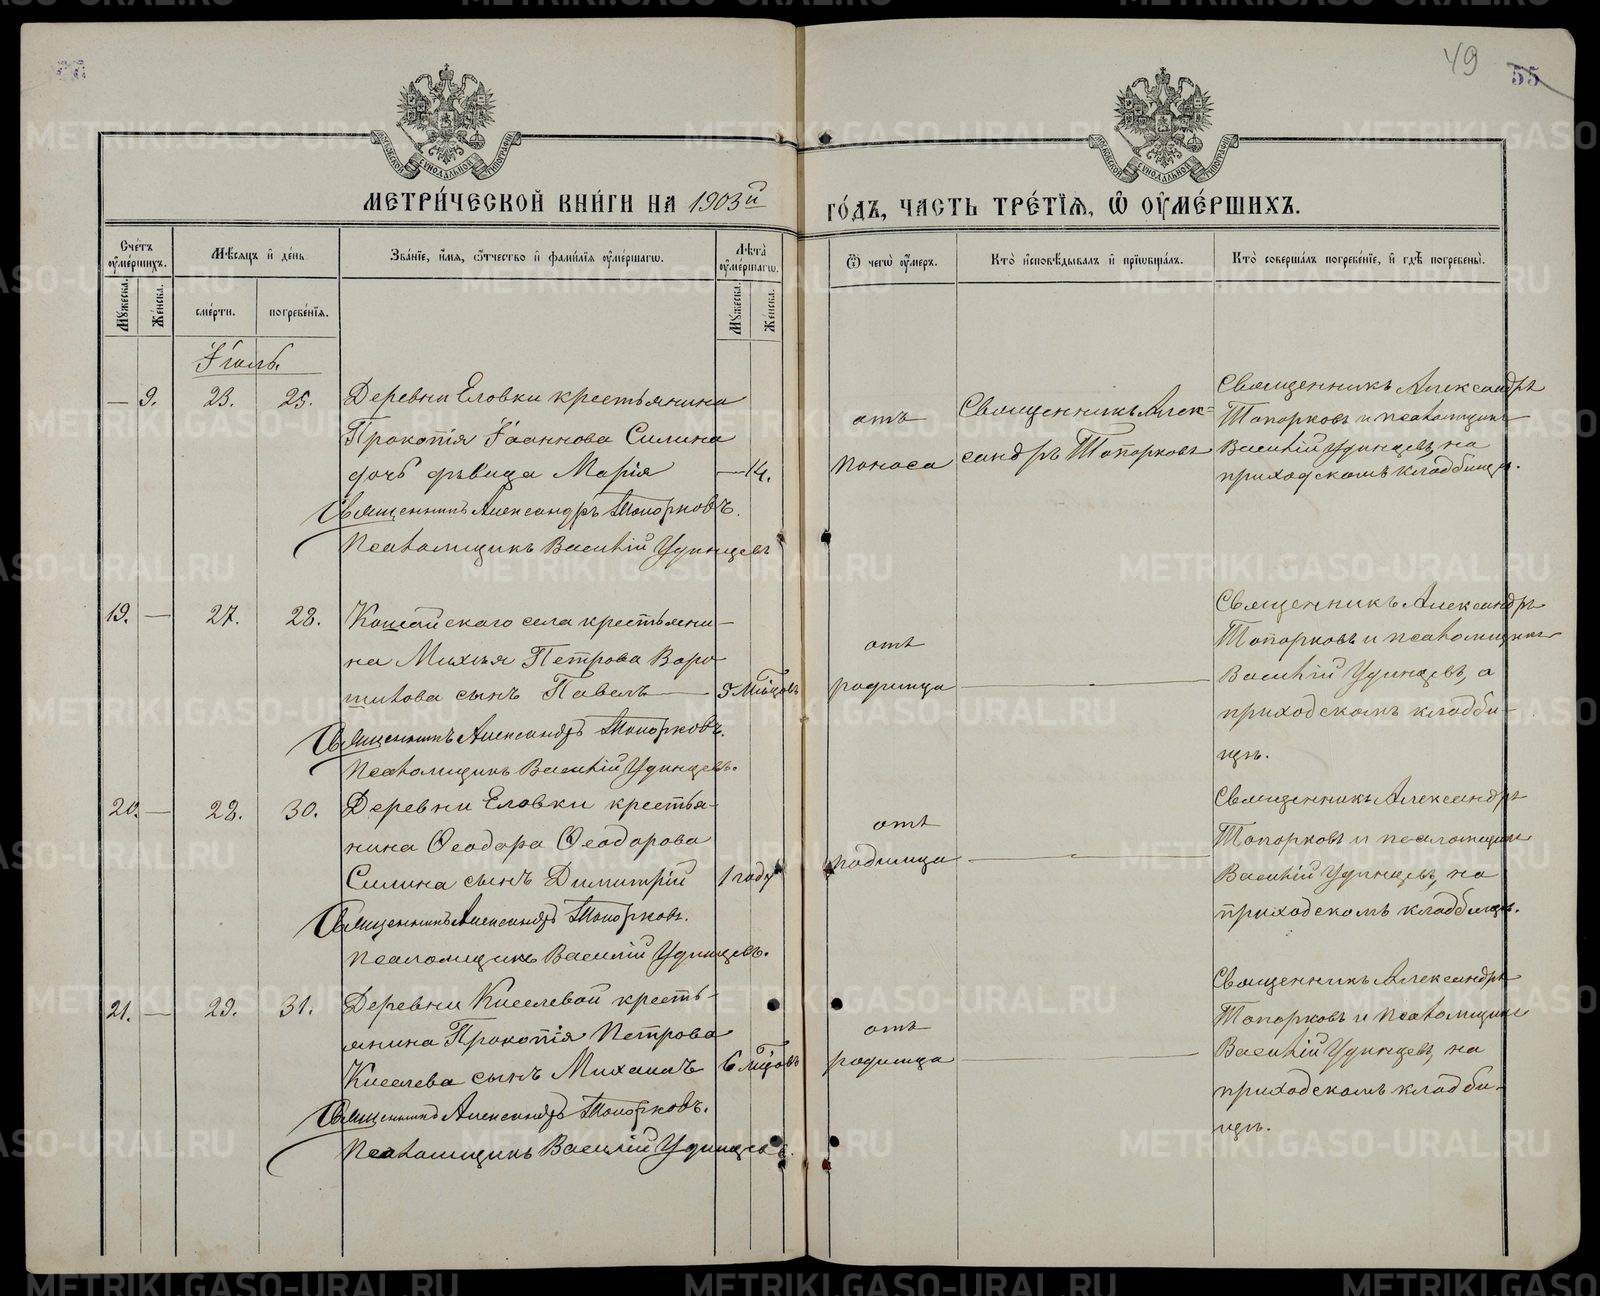 49
55
МОСКОВСКОЙ СѴНОДАЛЬНОЙ ТИПОГРАФІИ
МОСКОВСКОЙ СѴНОДАЛЬНОЙ ТИПОГРАФІИ
МЕТРИ́ЧЕСКОЙ КНИ́ГИ НА 1903й
ГО́ДЪ, ЧАСТЬ ТРЕ́ТІѦ, Ѿ ОУМЕ́РШИХЪ.
Сче́тъ оумéршихъ.
Мѣ́сяцъ и҆ де́нь
Зва́нїе, и҆́мя, ѻ҆́тчество и҆ фами́лїя оумéршагѡ.
Лѣ́та оумéршагѡ.
Ѿ чегѡ̀ оу́меръ.
Кто̀ и҆сповѣ́дывалъ и҆ прїѡбща́лъ.
Кто̀ соверша́лъ погребе́нїе, и҆ гдѣ̀ погребены̀.
Мꙋ́жеска.
Же́нска.
сме́рти.
погребе́нїя.
Мꙋ́жеска.
Же́нска.
Іюль.
— 9. 23. 25. Деревни Еловки крестьянина
Прокопія Іоаннова Силина
дочь дѣвица Марія — 14.
Священникъ Александръ Топорковъ.
Псаломщикъ Василій Удинцевъ
отъ
поноса
Священникъ Алек=
сандръ Топорковъ
Священникъ Александръ
Топорковъ и псаломщикъ
Василій Удинцевъ, на
приходскомъ кладбищѣ.
19. — 27. 28. Кошайского села крестьяни-
на Михея Петрова Воро-
шилова сынъ Павелъ — 5 мѣсцовъ
Священникъ Александръ Топорковъ.
Псаломщикъ Василій Удинцевъ.
отъ
родимца —
Священникъ Александръ
Топорковъ и псаломщикъ
Василій Удинцевъ, а
приходскомъ кладби-
щѣ.
20. — 28. 30. Деревни Еловки крестья-
нина Ѳеодора Ѳеодорова
Силина сынъ Димитрій 1 году
Священникъ Александръ Топорковъ.
Псаломщикъ Василій Удинцевъ.
отъ
родимца —
Священникъ Александръ
Топорковъ и псаломщикъ
Василій Удинцевъ, на
приходскомъ кладбищѣ.
21. — 29. 31. Деревни Киселевой кресть-
янина Прокопія Петрова
Киселева сынъ Михаилъ 6 мѣцовъ
Священникъ Александръ Топорковъ.
Псаломщикъ Василій Удинцевъ.
отъ
родимца —
Священникъ Александръ
Топорковъ и псаломщикъ
Василій Удинцевъ, на
приходскомъ кладби-
щѣ.
METRIKI.GASO-URAL.RU